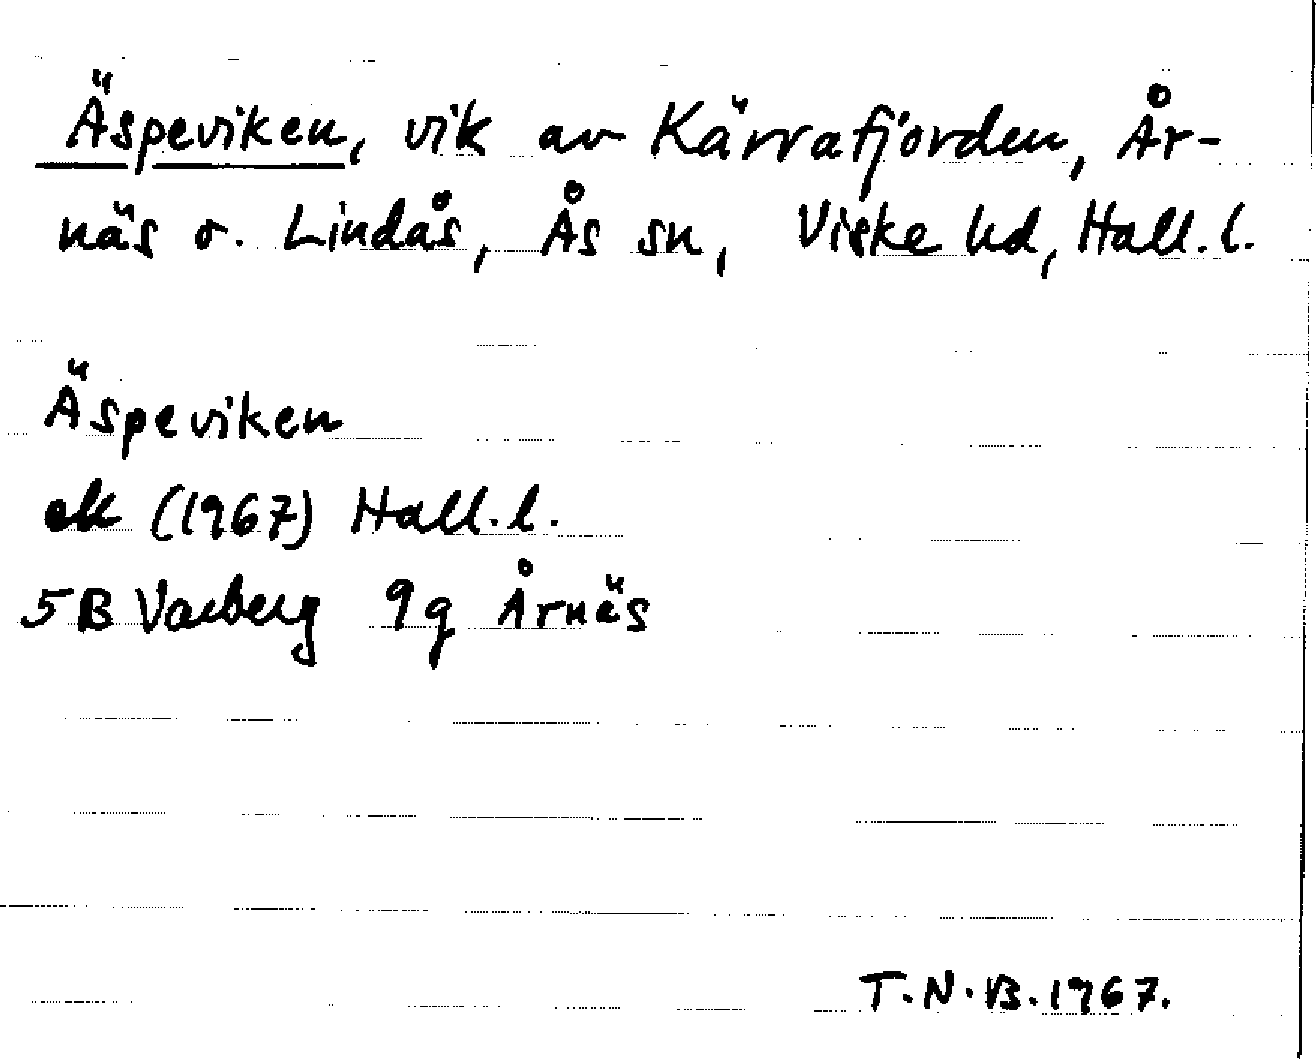 Äspeviken, vik av Kärrafjorden, År-
näs o. Lindås, Ås sn, Viske hd, Hall. l.
Äspeviken
ek (1967) Hall. l.
5B Varberg 9g Årnäs
T. N. B. 1967.